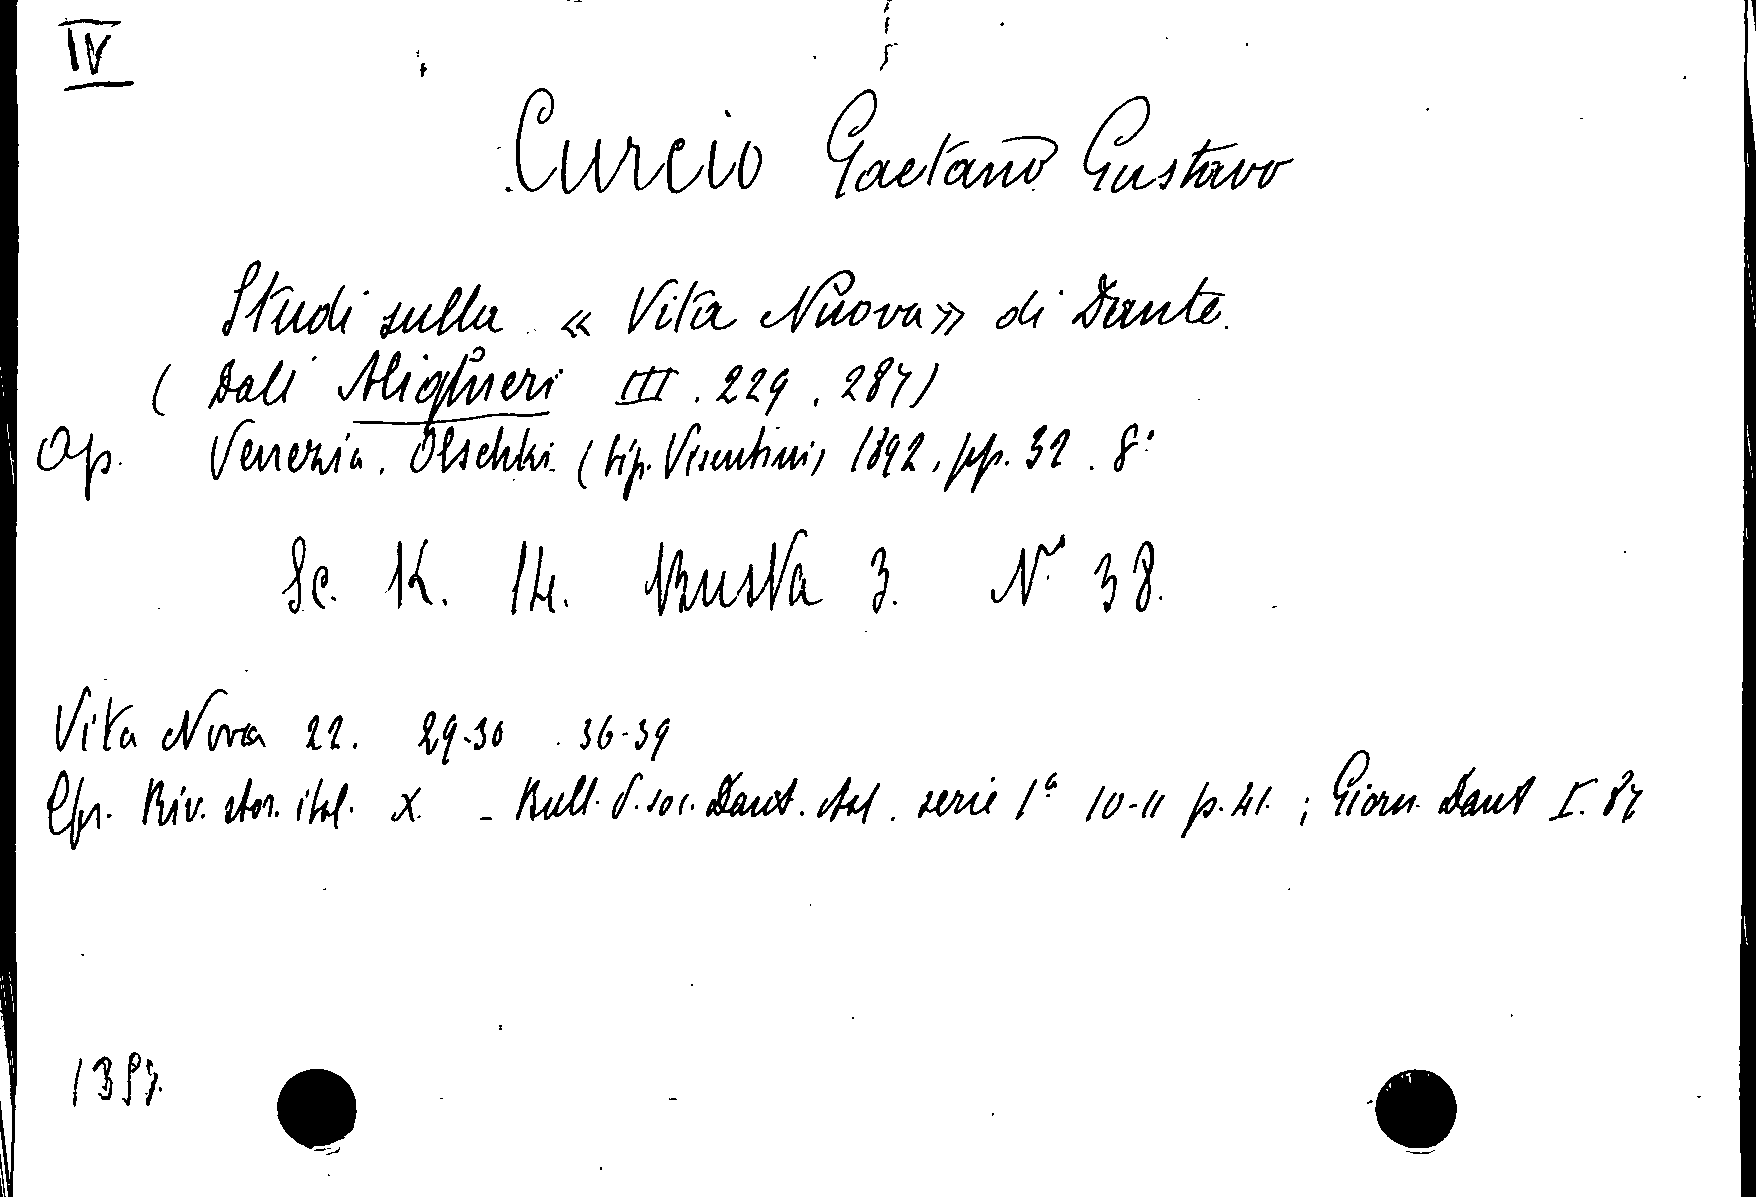 IV
Curcio Gaetano Gustavo
Studi sulla « Vita Nuova » di Dante.
( Dall' Alighieri III. 229. 287)
Op. Venezia. Olschki. (tip. Visentini) 1892, pp. 32. 8º
Sc. K. 14. Busta 3. Nº 38.
Vita Nova 22. 29-30 . 36-39
Cfr. Riv. stor. ital. X. - Bull. d. soc. Dant. ital. serie 1ª 10-11 p. 41. ; Giorn. Dant I. 87